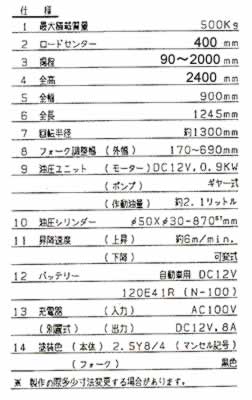 仕 様
1 最大積載質量 500Kg
2 ロードセンター 400mm
3 揚程 90~2000mm
4 全高 2400mm
5 全幅 900mm
6 全長 1245mm
7 回転半径 約1300mm
8 フォーク調整幅 (外幅) 170~690mm
9 油圧ユニット (モーター) DC12V,0.9KW
(ポンプ) ギヤー式
(作動油量) 約2.1リットル
10 油圧シリンダー φ50Xφ30-870ˢᵗmm
11 昇降速度 (上昇) 約6m/min.
(下降) 可変式
12 バッテリー 自動車用 DC12V
120E41R (N-100)
13 充電器 (入力) AC100V
(別置式) (出力) DC12V,8A
14 塗装色 (本体) 2.5Y8/4 (マンセル記号)
(フォーク) 黒色
※ 製作の際多少寸法変更する場合があります。